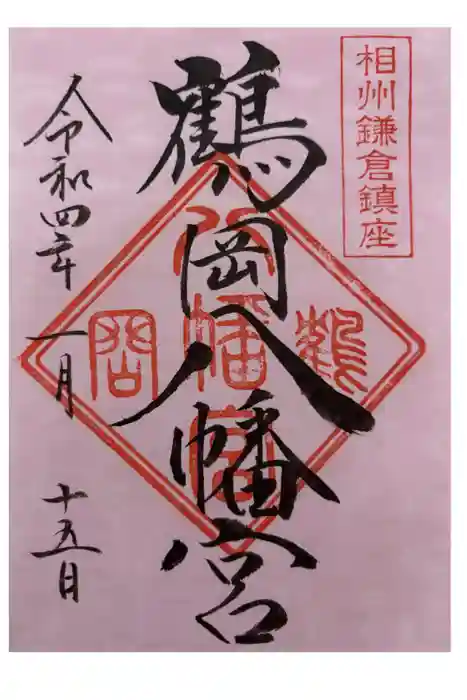 相州鎌倉鎮座
鶴岡八幡宮
鶴岡
八幡宮
令和四年
一月
十五日